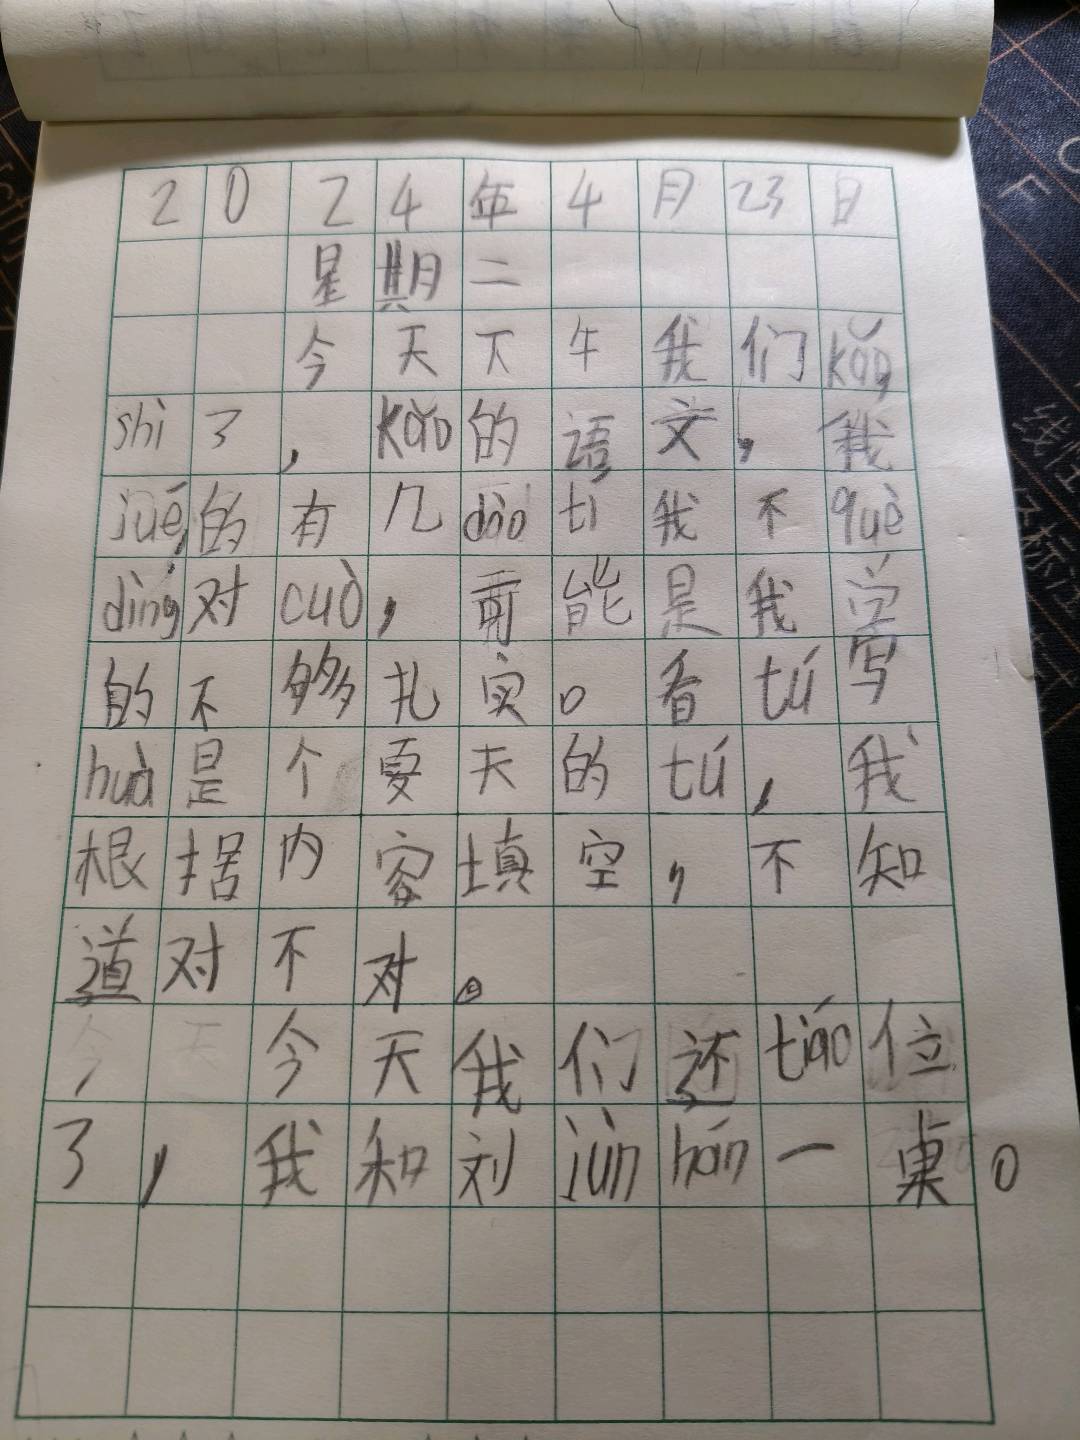 2024年4月23日
星期二
今天下午我们kǎo
shì了，kǎo的语文，我
jué的有几dào tí我不què
dìng对cuò，可能是我学
的不够扎实。看tú写
huà是个夏天的tú，我
根据内容填空，不知
道对不对。
今天我们还tiáo位
了，我和刘jùn hán一桌。